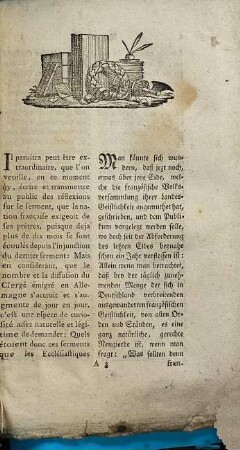 Il paroitra peut être ex-
traordinaire, que l'on
veuille, en ce moment
çy, écrire et transmettre
au public des réflexions
sur le serment, que la na-
tion françaife exigeoit de
ses prêtres, puisque dejà
plus de dix mois se sont
écoulés depuis l'injonction
du dernier serment: Mais
en considerant, que le
nombre et la diffusion du
Clergé émigré en Alle-
magne s'accroit et s'au-
gmente de jour en jour,
c'est une espèce de curio-
sité assés naturelle et légi-
time de demander: Quels
étoient donc ces sermens
que les Ecclésiastiques
Man könnte sich wun-
dern, daß jezt noch,
etwas über jene Eide, wel-
che die französische Volks-
versammlung ihrer Landes-
Geistlichkeit angemuthet hat,
geschrieben, und dem Publi-
kum vorgelegt werden solle,
wo doch seit der Abschwörung
des letzten Eides bernahe
schon ein Jahr verflossen ist:
Allein wenn man betrachtet,
daß bey der täglich zuneh-
menden Menge der sich in
Deutschland verbreitenden
ausgewanderten französischen
Geistlichkeit, von allen Or-
den und Ständen, es eine
ganz natürliche, gerechte
Neugierde ist, wenn man
fragt: „Was sollten denn
A 3
fran-